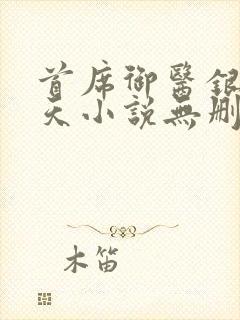 首席御醫銀
天小說無刪
木笛